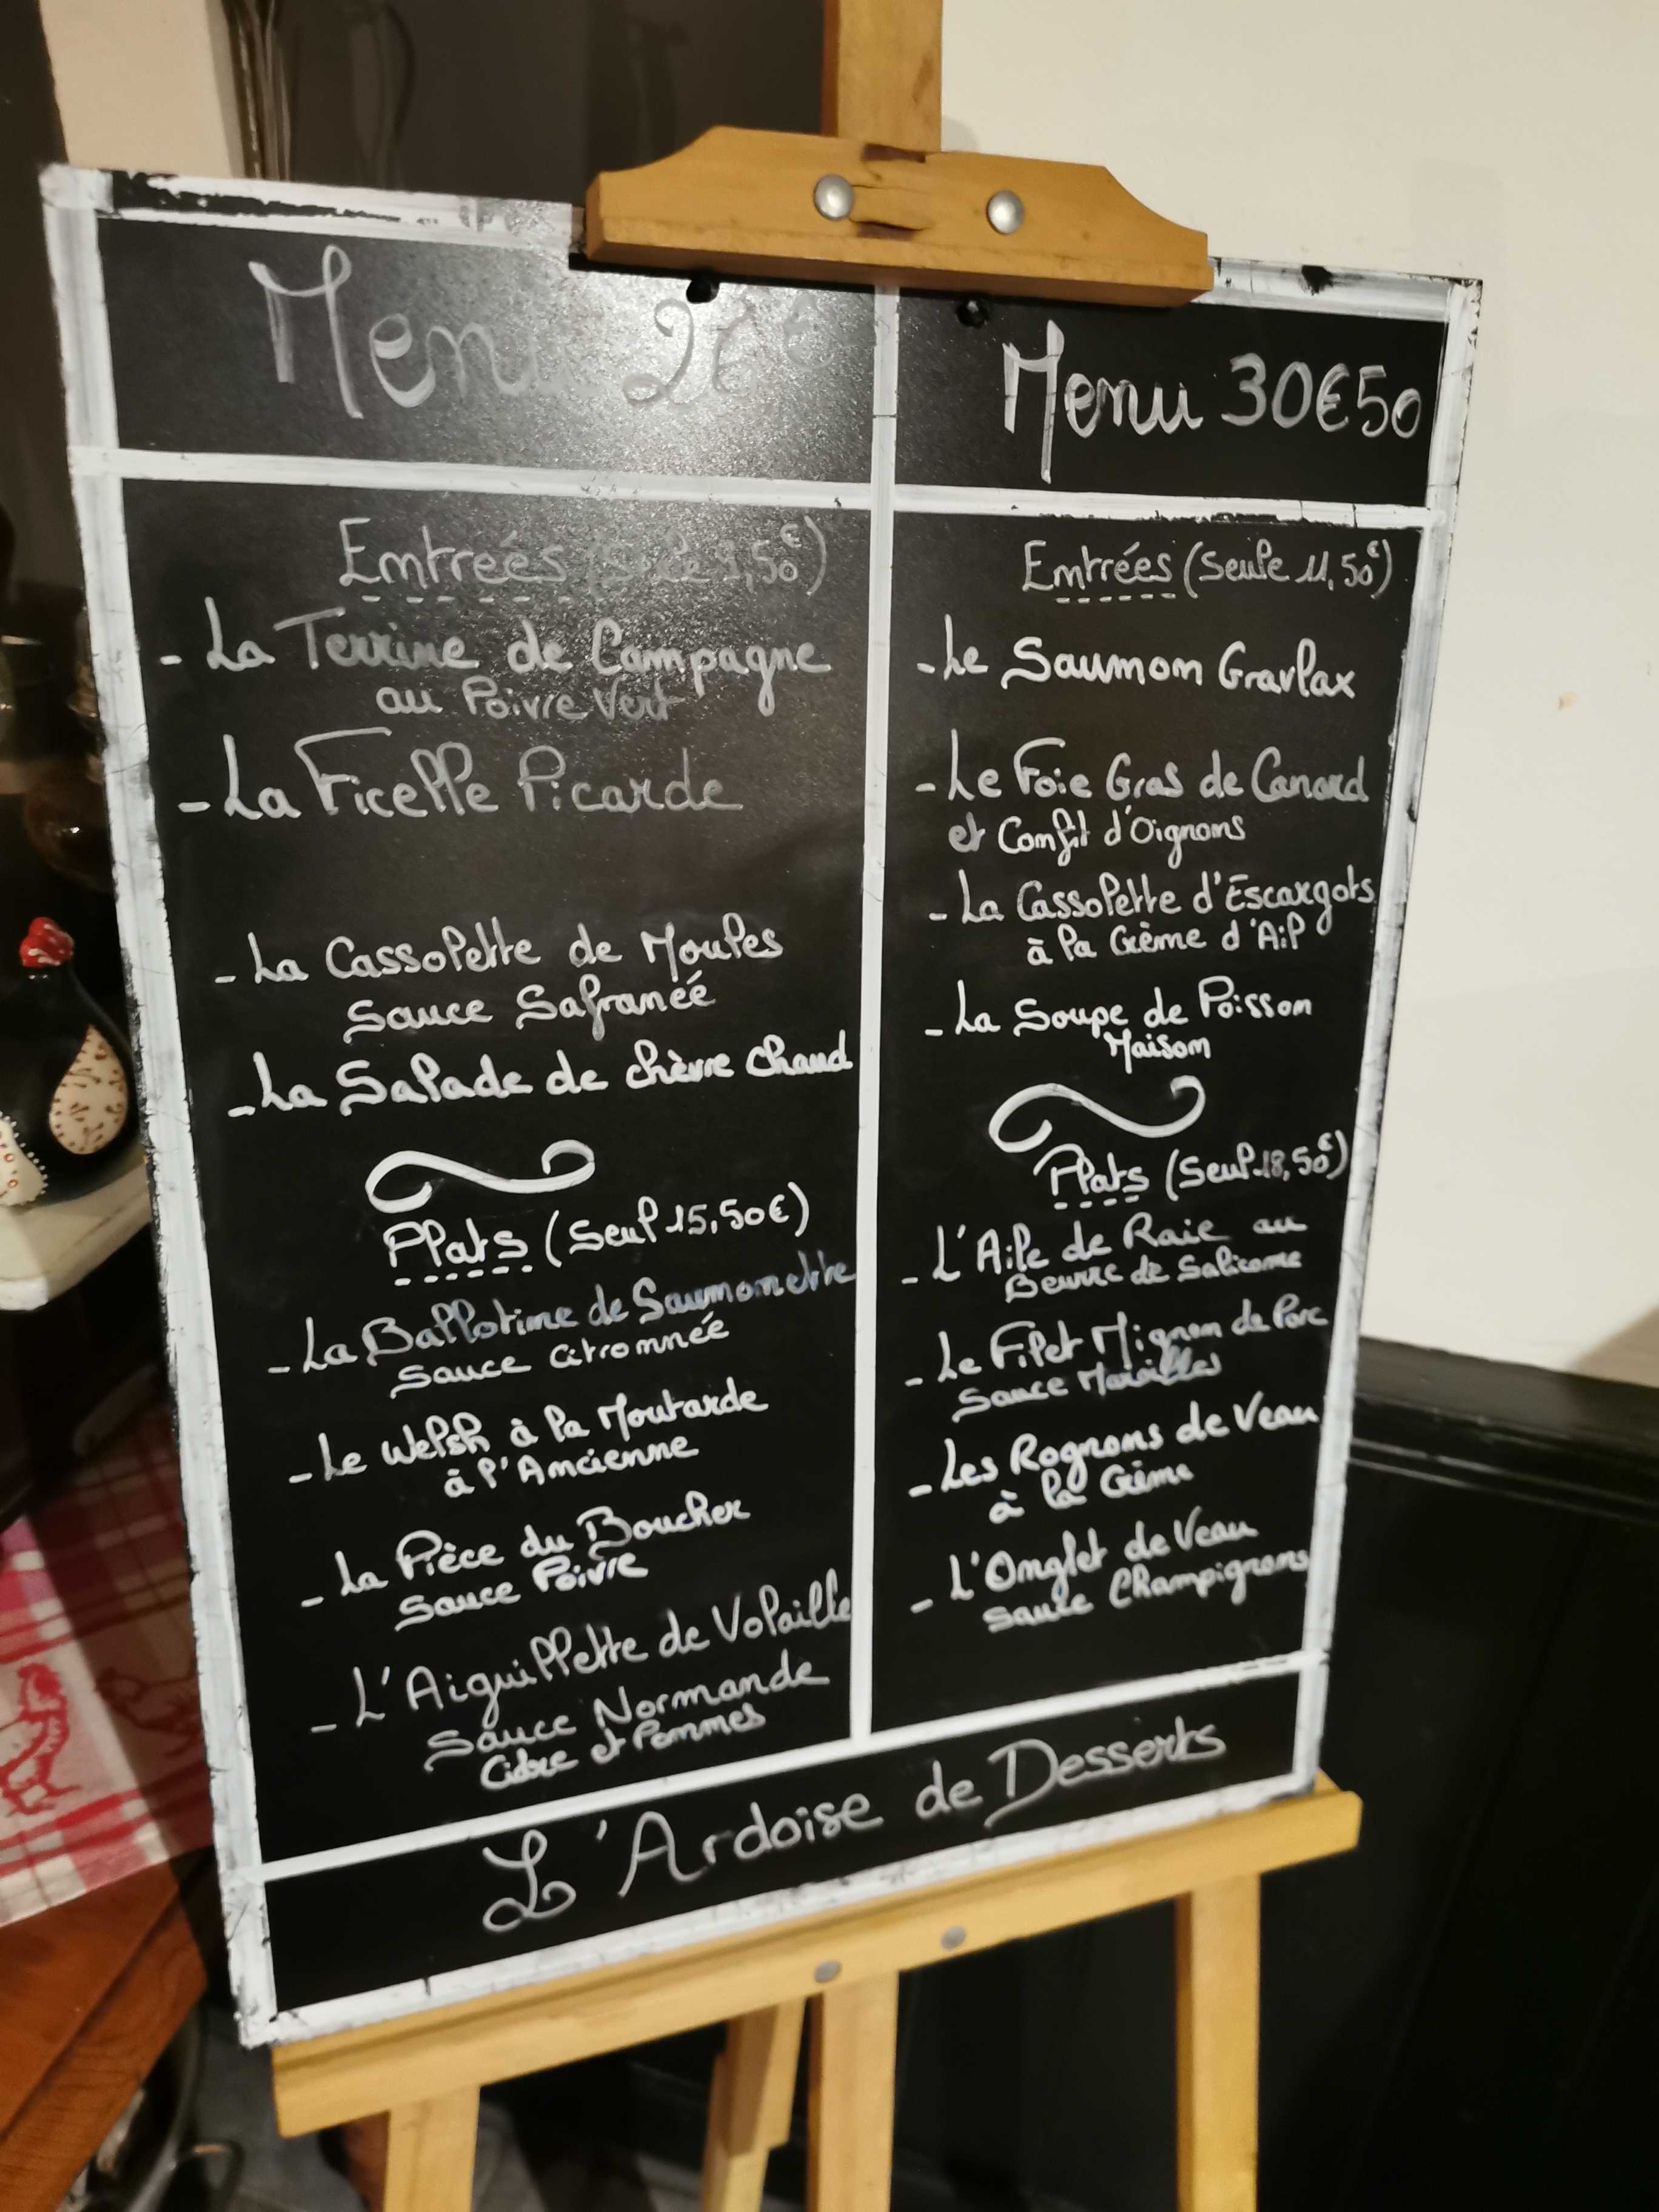 Menu 26€
Entreés (Seule 9,50€)
- La Terrine de Campagne
au Poivre Vert
- La Ficelle Picarde
- La Cassolette de Moules
Sauce Safraneé
- La Salade de chèvre chaud
Plats (Seul 15,50€)
- La Ballotine de Saumonette
Sauce Citronnée
- Le Welsh à la Moutarde
à l'Ancienne
- La Pièce du Boucher
Sauce Poivre
- L'Aiguillette de Volaille
Sauce Normande
Cidre et Pommes
Menu 30€50
Entrées (Seule 11,50€)
- Le Saumon Gravlax
- Le Foie Gras de Canard
et Confit d'Oignons
- La Cassolette d'Escargots
à la Crème d'Ail
- La Soupe de Poisson
Maison
Plats (Seul 18,50€)
- L'Aile de Raie au
Beurre de Salicorne
- Le Filet Mignon de Porc
Sauce Maroilles
- Les Rognons de Veau
à la Crème
- L'Onglet de Veau
Sauce Champignons
L'Ardoise de Desserts